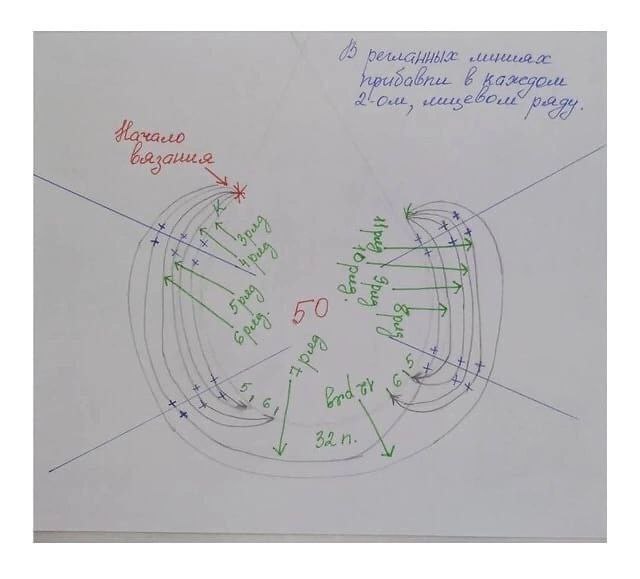 В регланных линиях
прибавки в каждом
2-ом, лицевом ряду.
Начало
вязания
К
3 ряд
4 ряд
5 ряд
6 ряд.
7 ряд
50
11 ряд
10 ряд.
9 ряд
8 ряд
12 ряд
5
6
6
5
32 п.